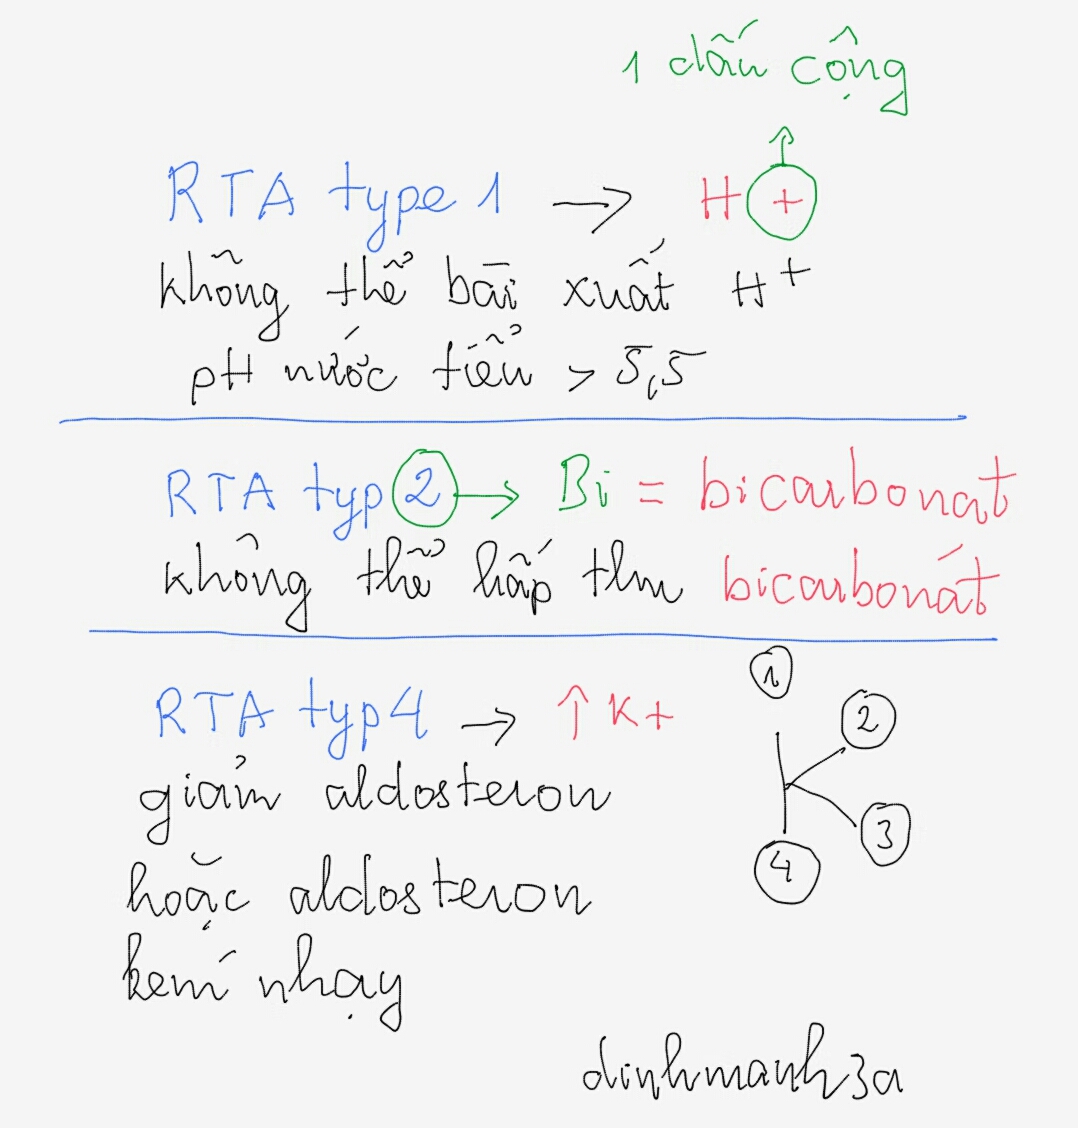 1 dấu cộng
RTA type 1 → H +
không thể bài xuất H+
pH nước tiểu > 5,5
RTA typ 2 → Bi = bicarbonat
không thể hấp thu bicarbonát
RTA typ 4 → ↑ K+
giảm aldosteron
hoặc aldosteron
kém nhạy
1
2
3
4
dinhmanh3a